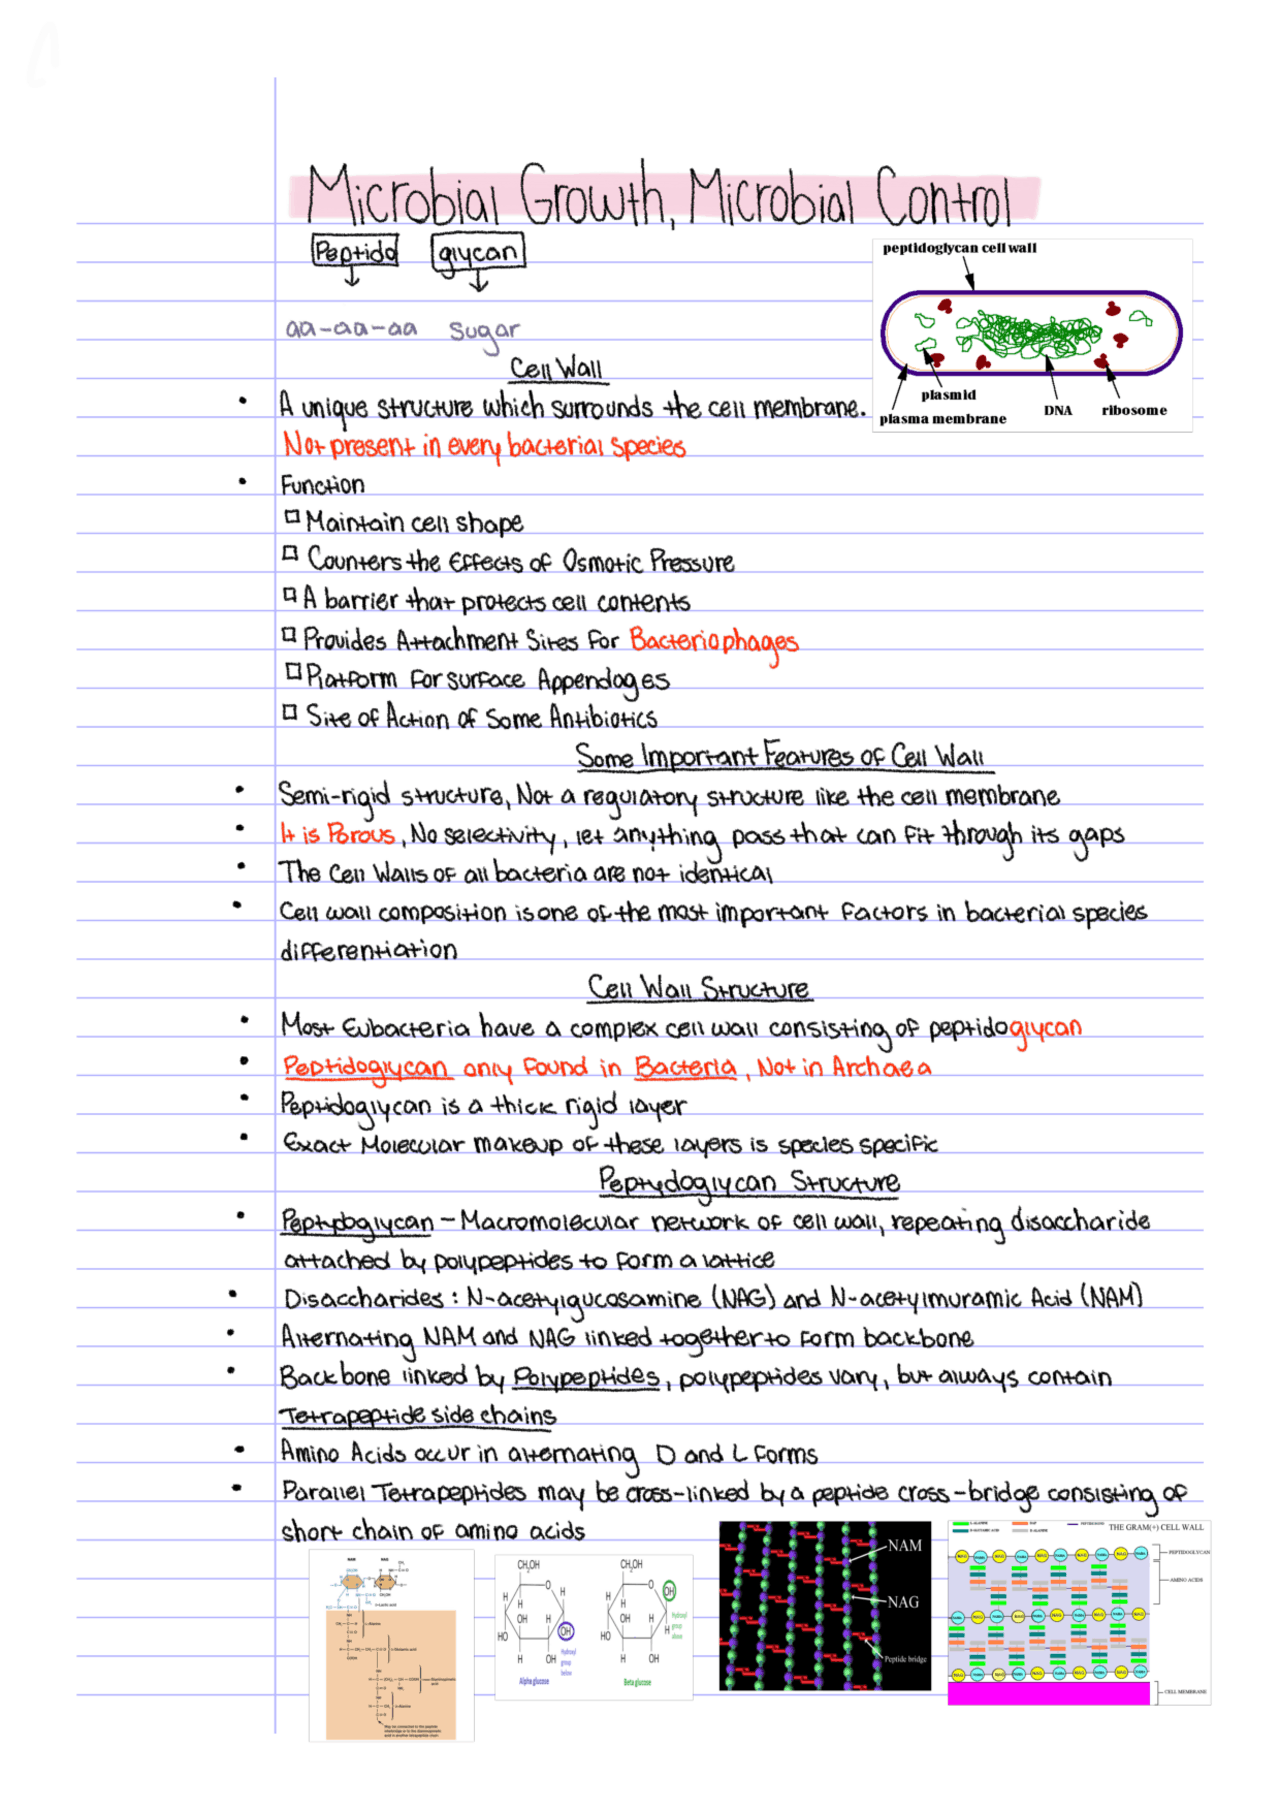 Microbial Growth, Microbial Control
Peptido glycan
aa-aa-aa sugar
peptidoglycan cell wall
plasmid
plasma membrane
DNA
ribosome
Cell Wall
• A unique structure which surrounds the cell membrane.
Not present in every bacterial species
• Function
Maintain cell shape
Counters the Effects of Osmotic Pressure
A barrier that protects cell contents
Provides Attachment Sites for Bacteriophages
Platform for surface Appendages
Site of Action of Some Antibiotics
Some Important Features of Cell Wall
• Semi-rigid structure, Not a regulatory structure like the cell membrane
• It is Porous, No selectivity, let anything pass that can fit through its gaps
• The Cell Walls of all bacteria are not identical
• Cell wall composition is one of the most important factors in bacterial species
differentiation
Cell Wall Structure
• Most Eubacteria have a complex cell wall consisting of peptidoglycan
• Peptidoglycan only found in Bacteria, Not in Archaea
• Peptidoglycan is a thick rigid layer
• Exact Molecular makeup of these layers is species specific
Peptydoglycan Structure
• Peptydoglycan - Macromolecular network of cell wall, repeating disaccharide
attached by polypeptides to form a lattice
• Disaccharides: N-acetylgucosamine (NAG) and N-acetylmuramic Acid (NAM)
• Alternating NAM and NAG linked together to form backbone
• Backbone linked by Polypeptides, polypeptides vary, but always contain
Tetrapeptide side chains
• Amino Acids occur in alternating D and L forms
• Parallel Tetrapeptides may be cross-linked by a peptide cross-bridge consisting of
short chain of amino acids
NAM NAG
CH₂OH
O
H
H
H
OH H
HO OH
H OH
Hydroxyl
group
below
Alpha glucose
CH₂OH
O OH
H
H
OH H
HO H
H OH
Hydroxyl
group
above
Beta glucose
NAM
NAG
Peptide bridge
THE GRAM(+) CELL WALL
PEPTIDOGLYCAN
AMINO ACIDS
CELL MEMBRANE